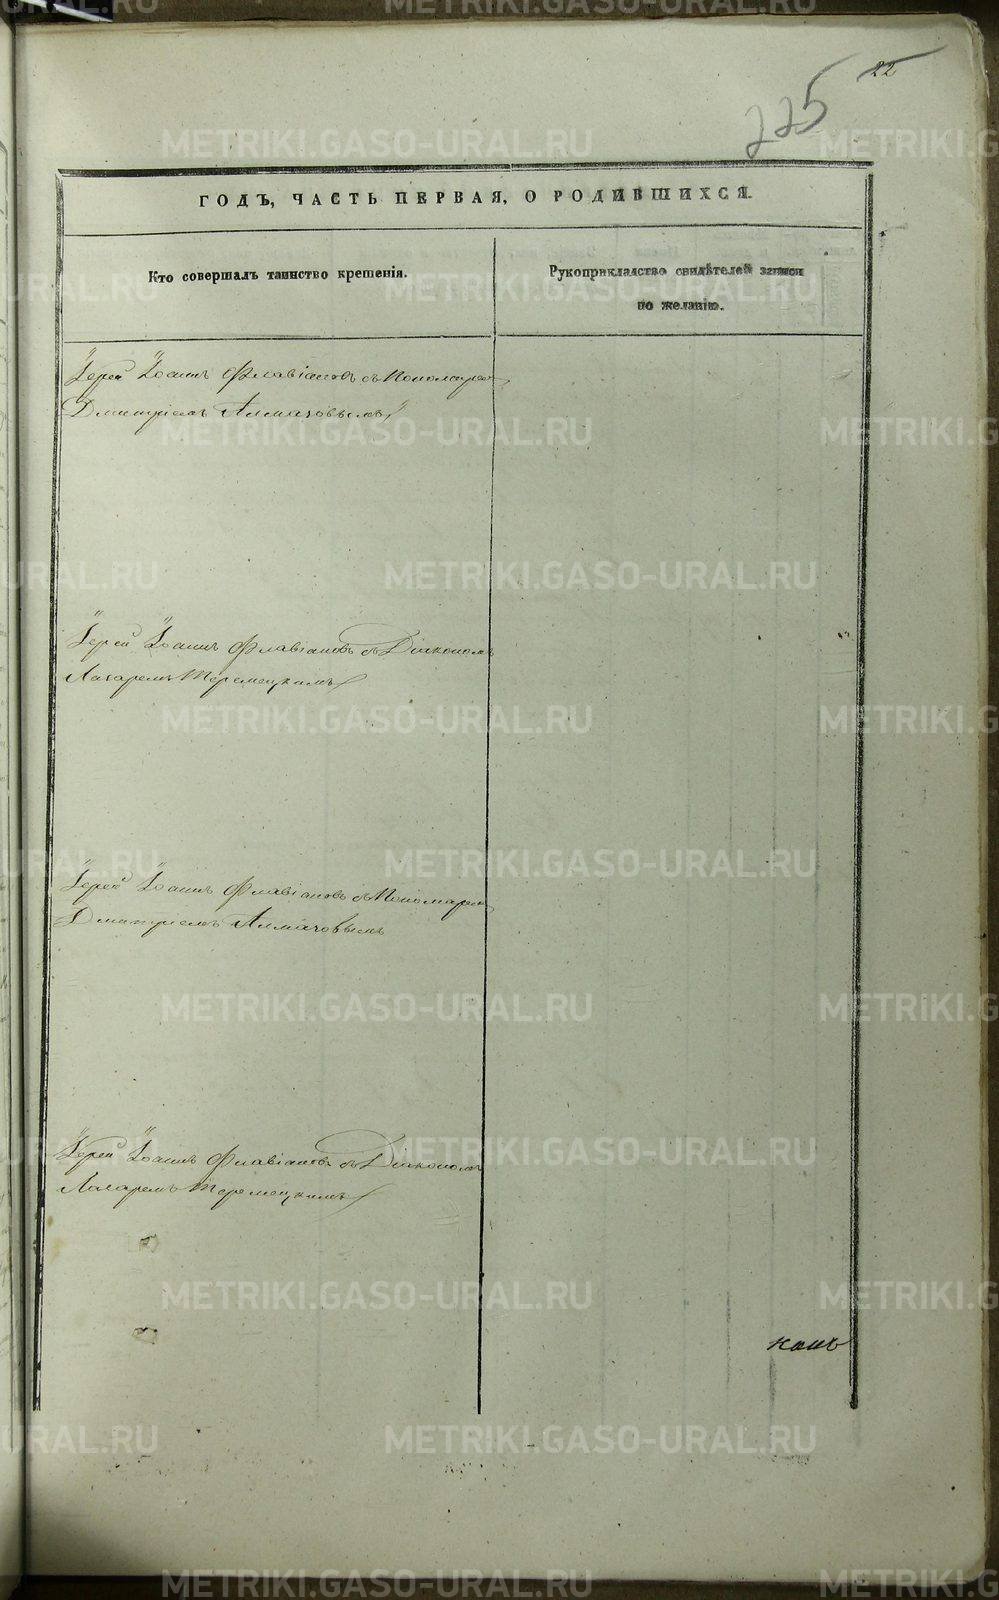 22
225
ГОДЪ, ЧАСТЬ ПЕРВАЯ, О РОДИВШИХСЯ.
Кто совершалъ таинство крещенія.
Рукоприкладство свидѣтелей записи
по желанію.
Іерей Іоаннъ Флавіановъ съ Пономаремъ
Дмитріемъ Алмазовымъ
Іерей Іоаннъ Флавіановъ съ Діакономъ
Лазаремъ
Іерей Іоаннъ Флавіановъ съ Пономаремъ
Дмитріемъ Алмазовымъ
Іерей Іоаннъ Флавіановъ съ Діакономъ
Лазаремъ
METRIKI.GASO-URAL.RU